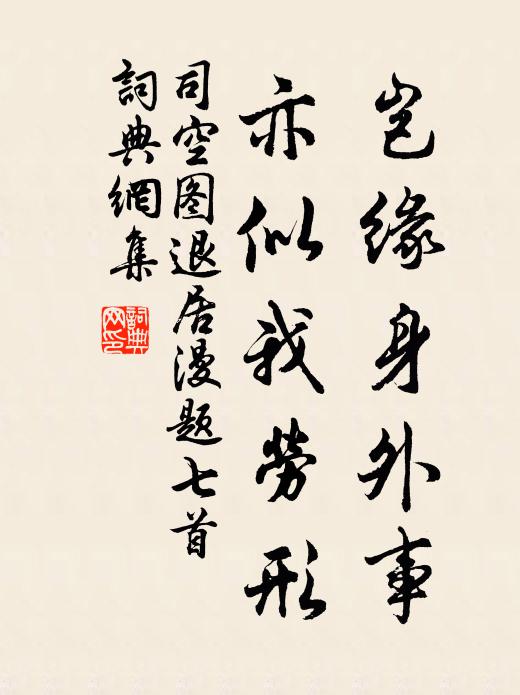 岂缘身外事
亦似我劳形
司空图退居漫题七首
詞典網集
詞典網印